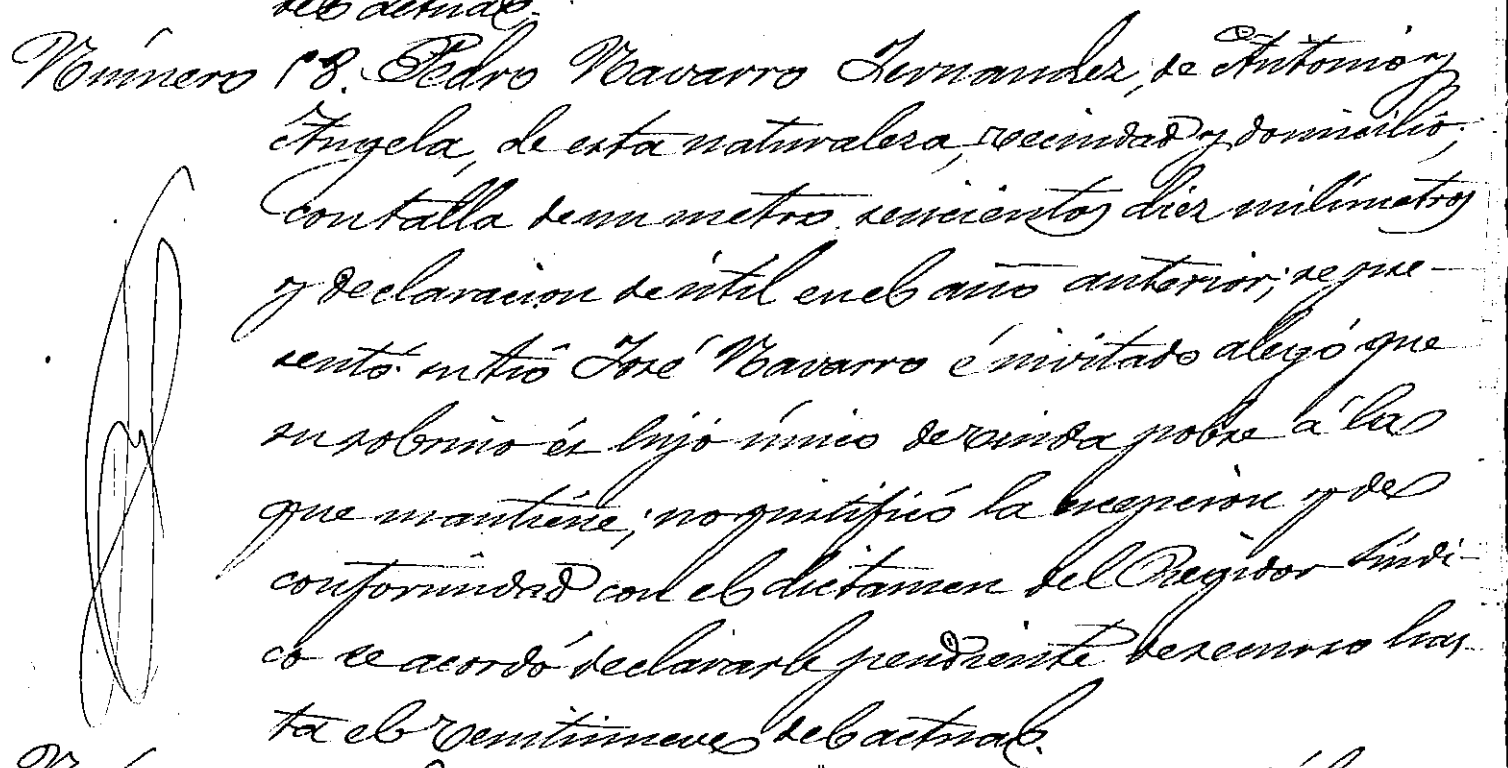 del actual.
Número 18. Pedro Navarro Fernandez, de Antonio y
Angela, de esta naturaleza, vecindad y domicilio;
con talla de un metro seiscientos diez milímetros
y declaracion de útil en el año anterior; se pre-
sentó su tio José Navarro é invitado alegó que
su sobrino és hijo único de viuda pobre á las
que mantiene; no justificó la excepcion y de
conformidad con el dictamen del Regidor Síndi-
co se acordó declararle pendiente de recurso has-
ta el veintinueve del actual.